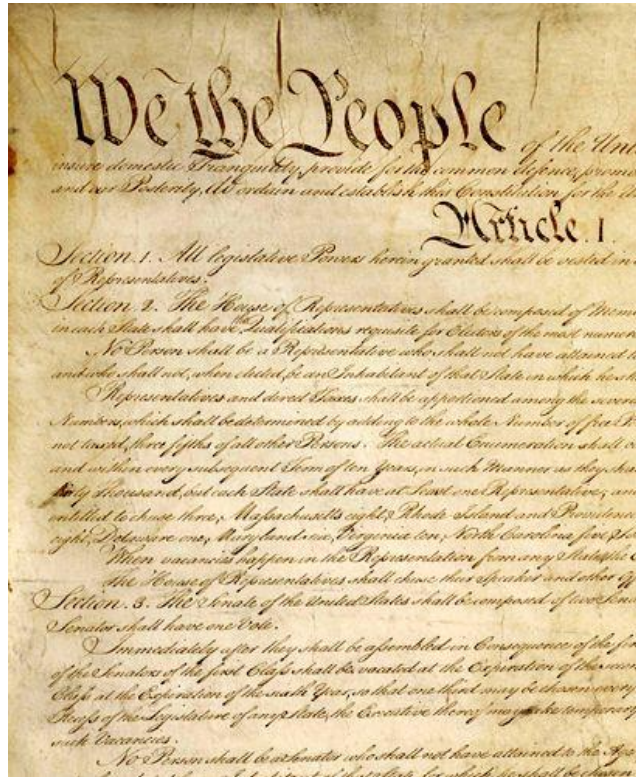 We the People of the Unit
insure domestic Tranquility, provide for the common defence, promo
and our Posterity, do ordain and establish this Constitution for the U
Article. I.
Section. 1. All legislative Powers herein granted shall be vested in
of Representatives.
Section. 2. The House of Representatives shall be composed of Mem
in each State shall have the Qualifications requisite for Electors of the most numer
No Person shall be a Representative who shall not have attained
and who shall not, when elected, be an Inhabitant of that State in which he s
Representatives and direct Taxes shall be apportioned among the severa
Numbers, which shall be determined by adding to the whole Number of free P
not taxed, three fifths of all other Persons. The actual Enumeration shall
and within every subsequent Term of ten Years, in such Manner as they sha
thirty Thousand, but each State shall have at Least one Representative; an
entitled to chuse three, Massachusetts eight, Rhode Island and Providence
eight, Delaware one, Maryland six, Virginia ten, North Carolina five, So
When vacancies happen in the Representation from any State, the
The House of Representatives shall chuse their Speaker and other Of
Section. 3. The Senate of the United States shall be composed of two Sena
Senator shall have one Vote.
Immediately after they shall be assembled in Consequence of the fir
of the Senators of the first Class shall be vacated at the Expiration of the secon
Class at the Expiration of the sixth Year, so that one third may be chosen every
Recess of the Legislature of any State, the Executive thereof may make temporary
such Vacancies.
No Person shall be a Senator who shall not have attained to the Age